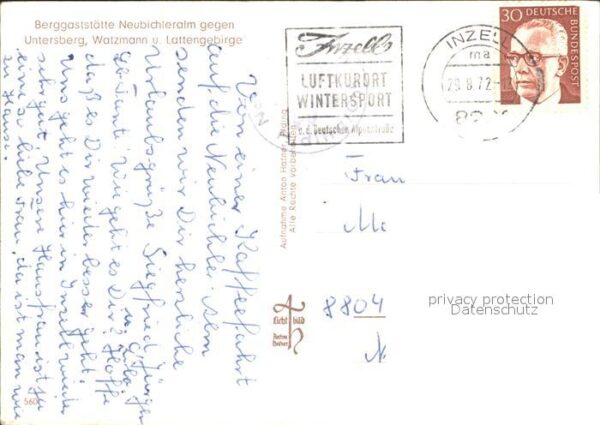 Berggaststätte Neubichleralm gegen
Untersberg, Watzmann u. Lattengebirge
Inzell
LUFTKURORT
WINTERSPORT
a.d. Deutschen Alpenstraße
INZELL
ma
29.8.72-12
30 DEUTSCHE BUNDESPOST
Von einer Kaffeefahrt
auf die Neubichler Alm
senden wir Dir herzliche
Urlaubsgrüße Siegfried, Jürgen
Tante wie geht es Dir? Hoffe
daß es Dir wieder besser geht.
Uns geht es hier in Inzell wieder
sehr gut. Unsere Hausfrau ist ja
eine so liebe Frau, da ist man wie
zu Hause.
Aufnahme Anton Hafner,
Alle Rechte vorbehalten
Licht bild
Anton Hafner
Frau
M
8804
privacy protection
Datenschutz
560